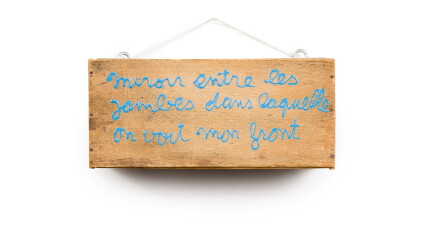 miroir entre les
jambes dans laquelle
on voit mon front